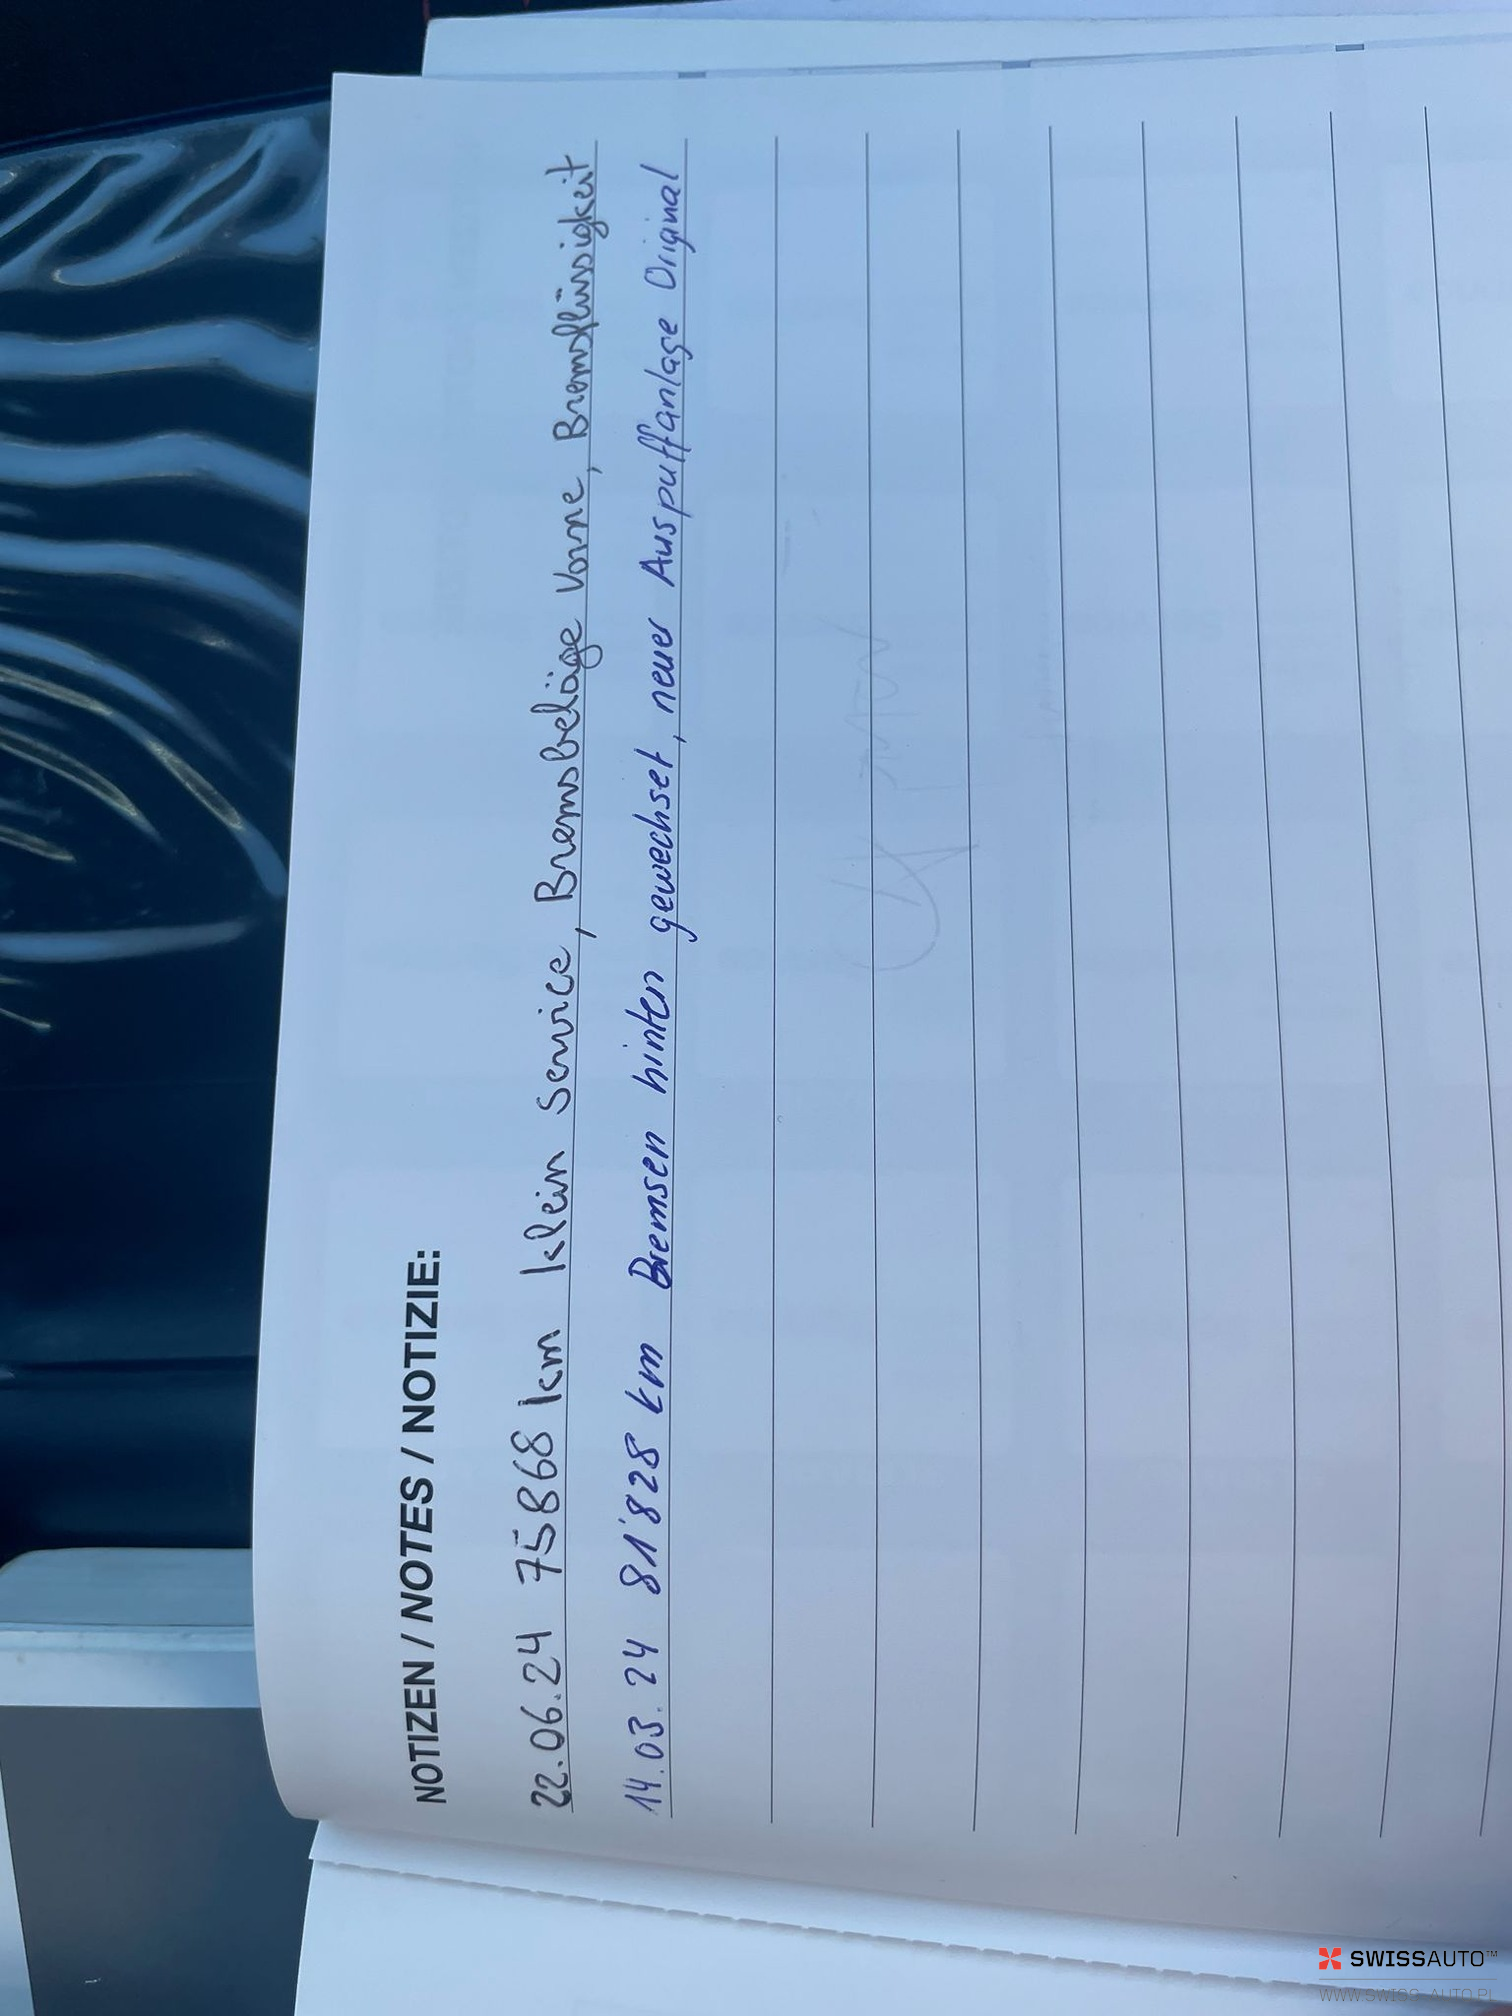 NOTIZEN / NOTES / NOTIZIE:
22.06.24 75868 km klein Service, Bremsbeläge Vorne, Bremsflüssigkeit
14.03.24 81'828 km Bremsen hinten gewechset, neuer Auspuffanlage Original
SWISSAUTO™
WWW.SWISS-AUTO.PL